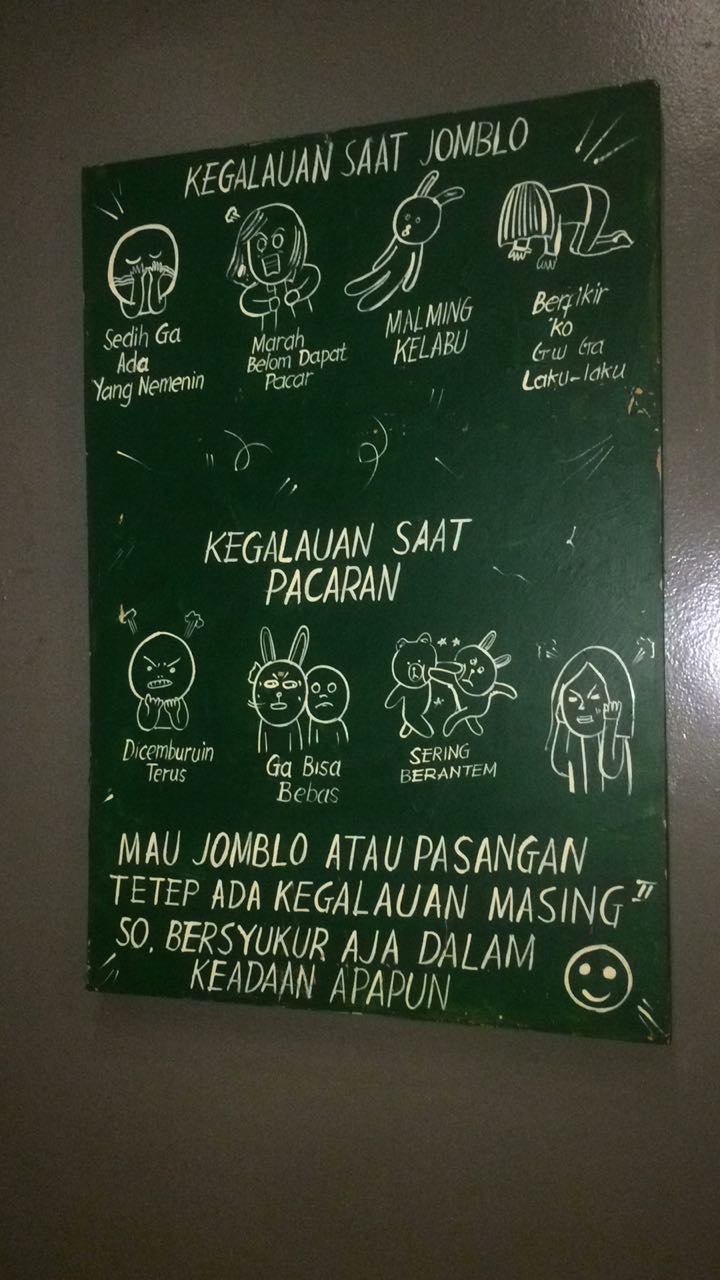 KEGALAUAN SAAT JOMBLO
Sedih Ga
Ada
Yang Nemenin
Marah
Belom Dapat
Pacar
MALMING
KELABU
Berfikir
'ko
Gw Ga
Laku-laku
KEGALAUAN SAAT
PACARAN
Dicemburuin
Terus
Ga Bisa
Bebas
SERING
BERANTEM
MAU JOMBLO ATAU PASANGAN
TETEP ADA KEGALAUAN MASING"
SO, BERSYUKUR AJA DALAM
KEADAAN APAPUN